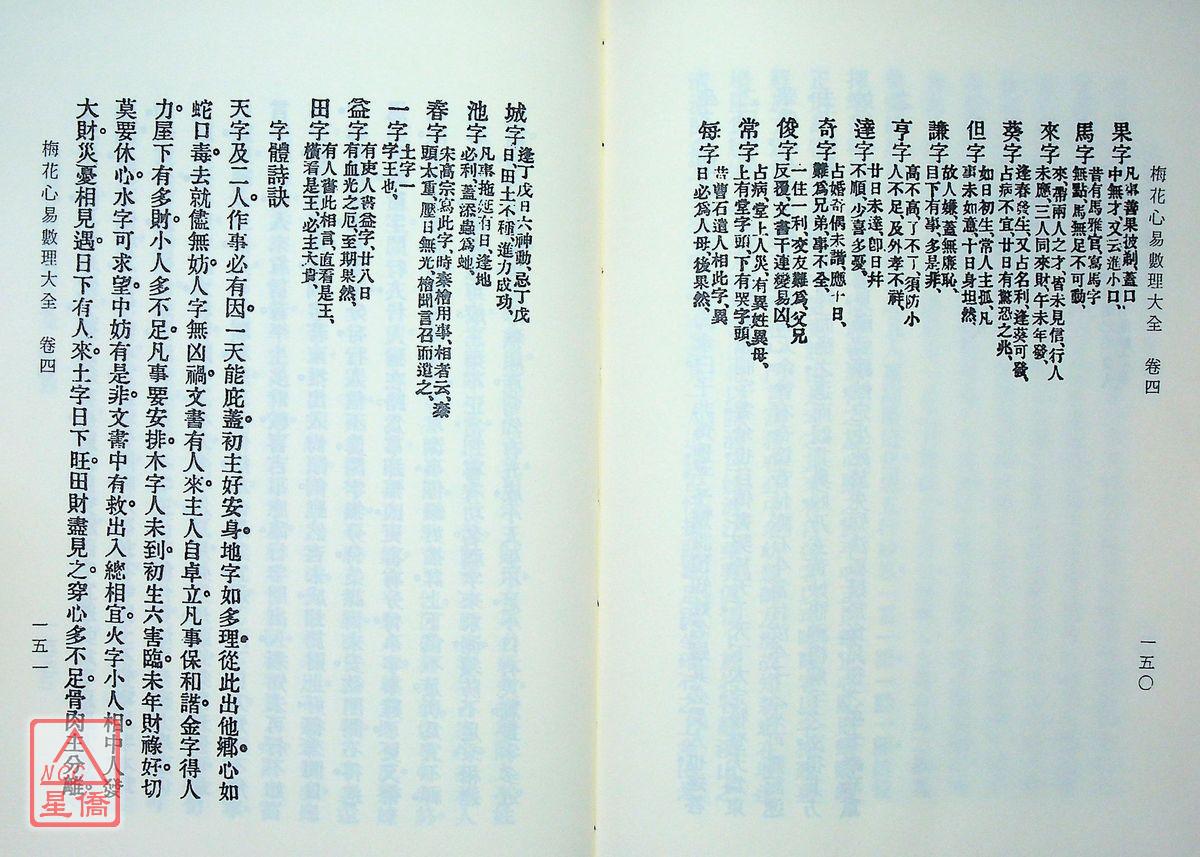 梅花心易數理大全 卷四
一五〇
果字
凡事善果披剃、蓋口
中無才、又云進小口、
馬字
昔有馬雅官、寫馬字
無點、馬無足不可動、
來字
來帶兩人之才、皆未見信、行人
未應、三人同來財、午未年發、
葵字
逢春發生、又占名利、逢葵可發、
占病不宜、廿日有驚恐之兆、
但字
如日初生、常人主孤、凡
事未如意、十日身坦然、
謙字
故人嫌、蓋無廉恥、
目下有事、多是非、
亨字
高不高、了不了、須防小
人不足、及外孝不祥、
達字
廿日未達、卽日幷
不順、少喜多憂、
奇字
占婚奇偶未諧、應十日、
難爲兄弟、事不全、
俊字
一住一利、交友難爲、父兄
反覆、文書干連、變易凶
常字
占病、堂上人災、有異姓異母、
上有堂字頭、下有哭字頭、
每字
昔曹石遣人相此字、異
日必爲人母、後果然、
城字
逢丁戊日、六神動、忌丁戊
日、田土不穩、進力成功、
池字
凡事拖延、有日、逢地
必利、蓋添蟲爲虵、
春字
宋高宗寫此字時、秦檜用事、相者云、秦
頭太重、壓日無光、檜聞言召而遣之、
一字
土字一
字王也、
益字
有吏人書益字、廿八日
有血光之厄、至期果然、
田字
有人書此相、言直看是王、
橫看是王、必主大貴、
字體詩訣
天字及二人。作事必有因。一天能庇蓋。初主好安身。地字如多理。從此出他鄉。心如
蛇口毒。去就儘無妨。人字無凶禍。文書有人來。主人自卓立。凡事保和諧。金字得人
力。屋下有多財。小人多不足。凡事要安排。木字人未到。初生六害臨。未年財祿好。切
莫要休心。水字可求望。中妨有是非。文書中有救。出入總相宜。火字小人相。中人發
大財。災憂相見遇。日下有人來。土字日下旺。田財盡見之。穿心多不足。骨肉主分離。
梅花心易數理大全 卷四
一五一
NCC
星僑